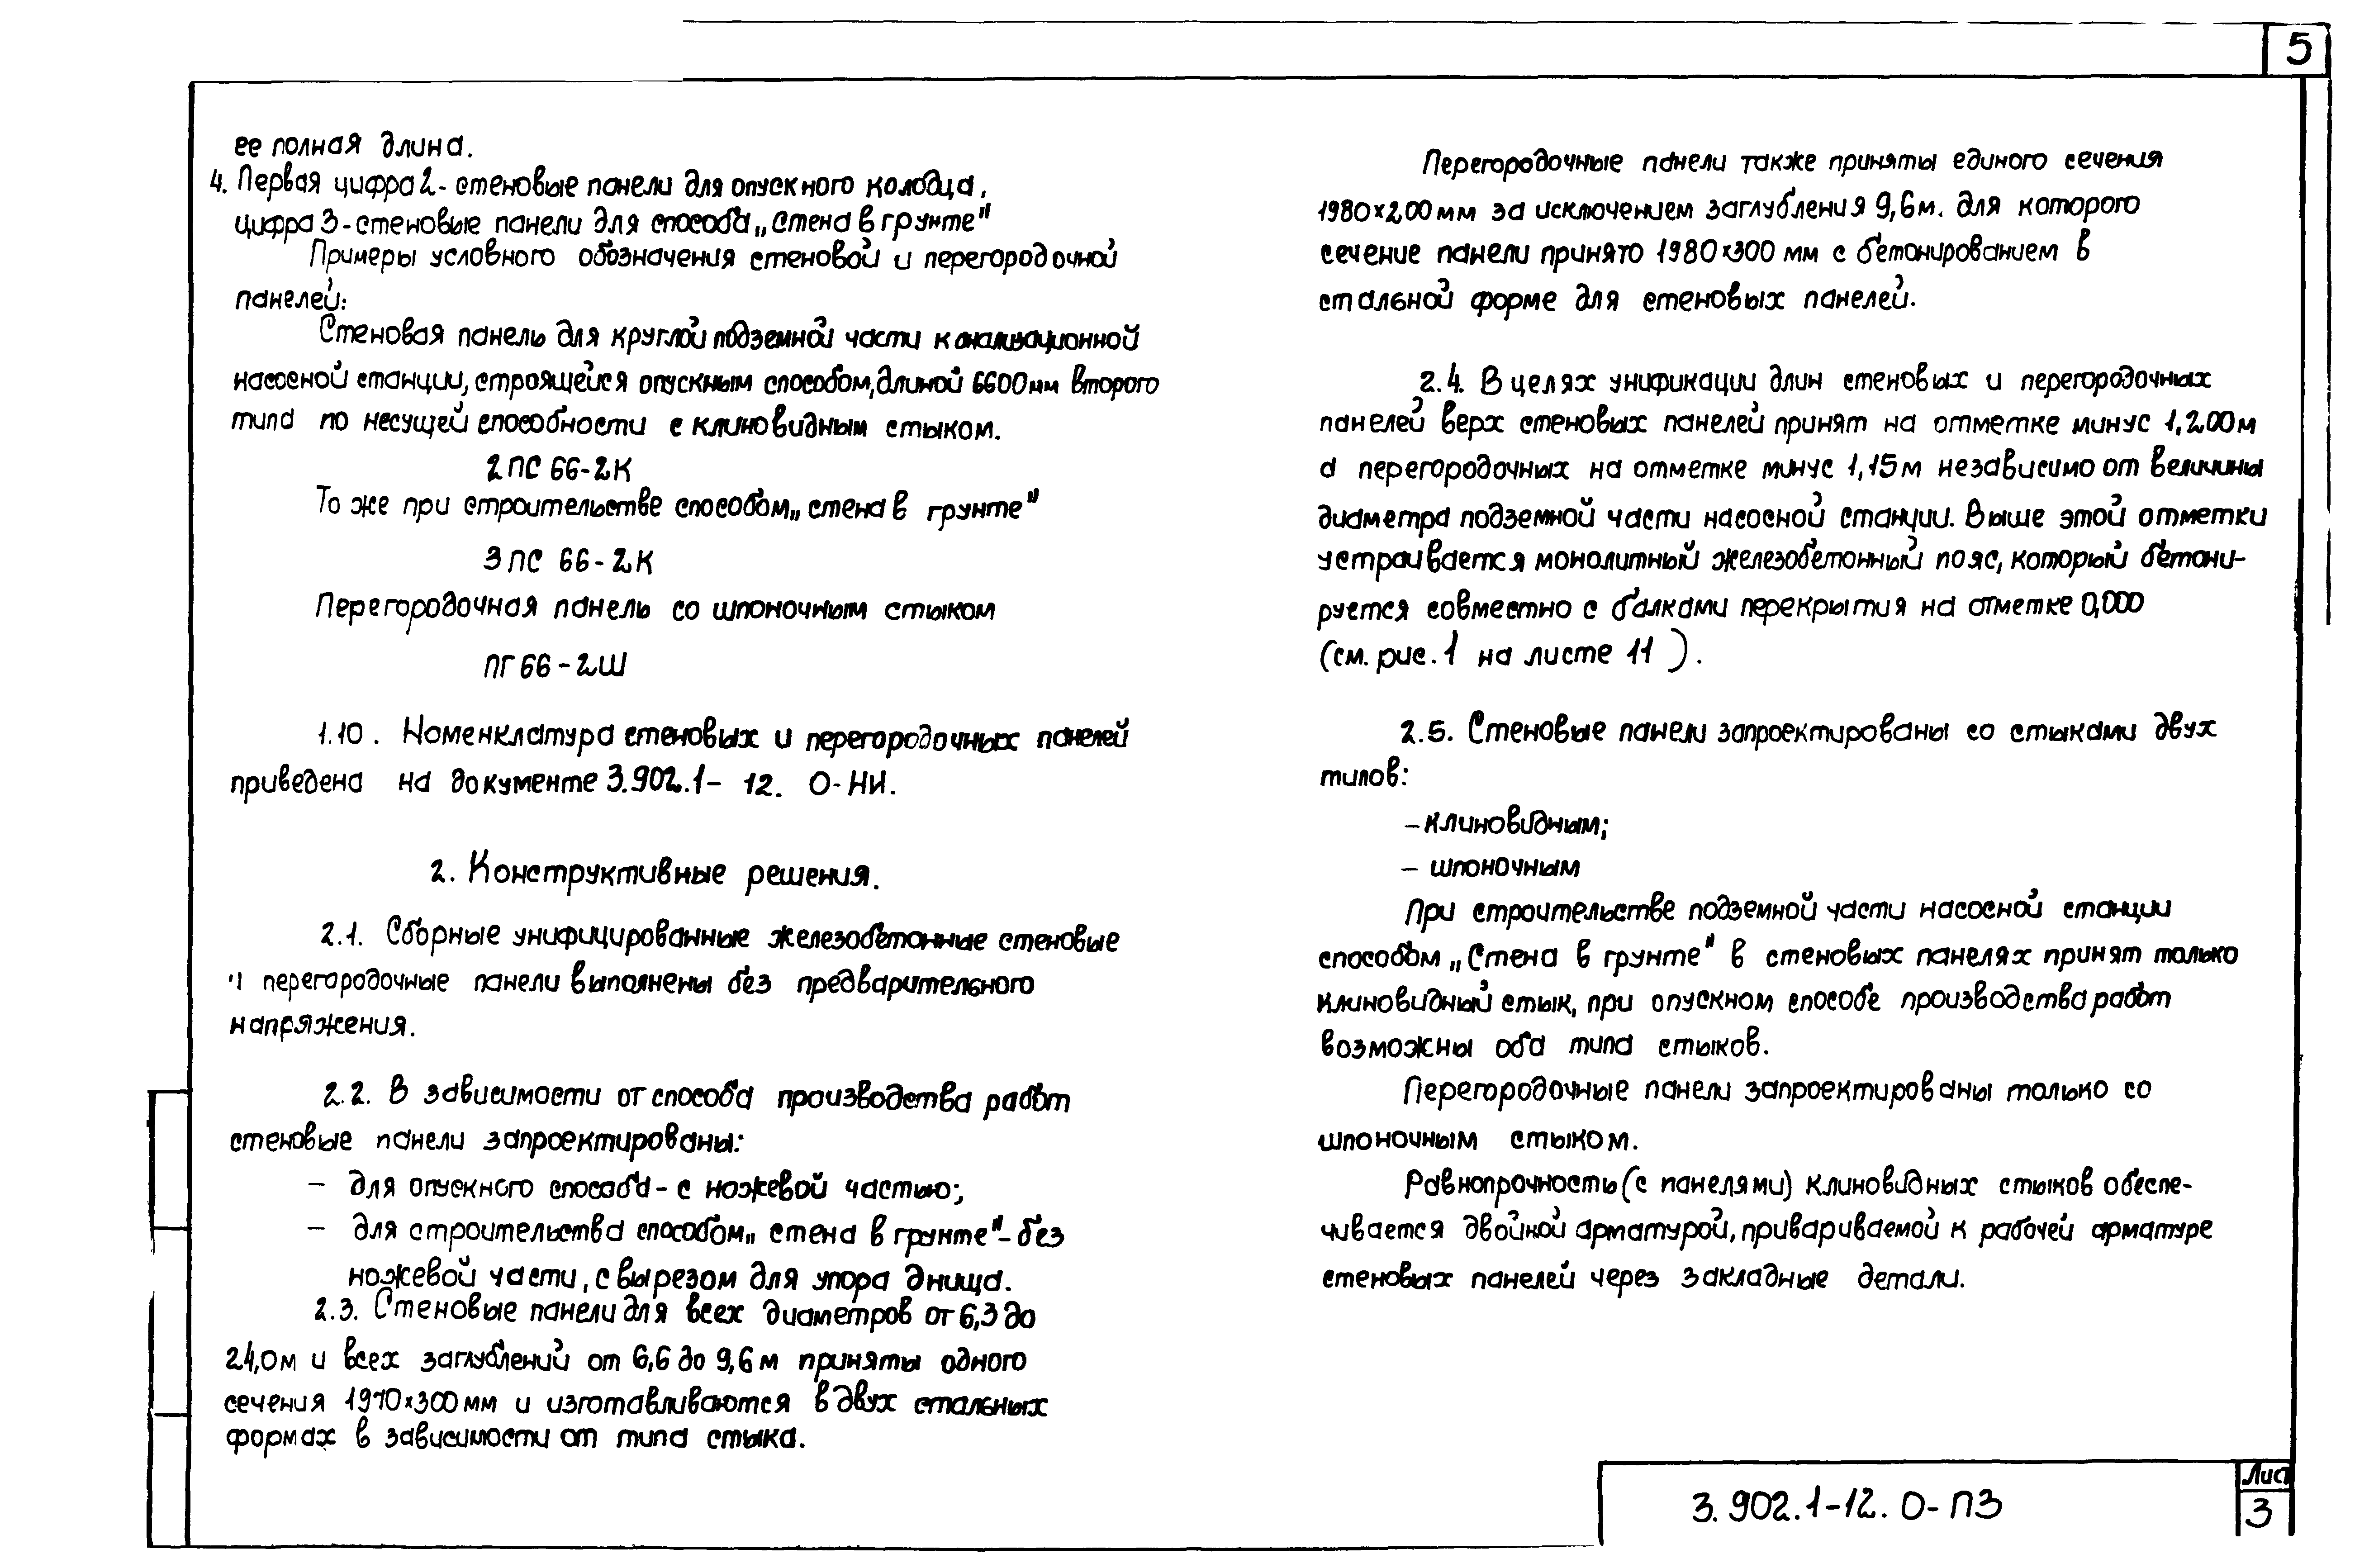 5
ее полная длина.
4. Первая цифра 2 - стеновые панели для опускного колодца,
цифра 3 - стеновые панели для способа „Стена в грунте"
Примеры условного обозначения стеновой и перегородочной
панелей:
Стеновая панель для круглой подземной части канализационной
насосной станции, строящейся опускным способом, длиной 6600 мм второго
типа по несущей способности с клиновидным стыком.
2 ПС 66-2К
То же при строительстве способом „стена в грунте"
3 ПС 66-2К
Перегородочная панель со шпоночным стыком
ПГ 66-2Ш
1.10. Номенклатура стеновых и перегородочных панелей
приведена на документе 3.902.1- 12. 0-НИ.
2. Конструктивные решения.
2.1. Сборные унифицированные железобетонные стеновые
и перегородочные панели выполнены без предварительного
напряжения.
2.2. В зависимости от способа производства работ
стеновые панели запроектированы:
- для опускного способа - с ножевой частью;
- для строительства способом „стена в грунте"- без
ножевой части, с вырезом для упора днища.
2.3. Стеновые панели для всех диаметров от 6,3 до
24,0м и всех заглублений от 6,6 до 9,6 м приняты одного
сечения 1970×300 мм и изготавливаются в двух стальных
формах в зависимости от типа стыка.
Перегородочные панели также приняты единого сечения
1980×200 мм за исключением заглубления 9,6м. для которого
сечение панели принято 1980×300 мм с бетонированием в
стальной форме для стеновых панелей.
2.4. В целях унификации длин стеновых и перегородочных
панелей верх стеновых панелей принят на отметке минус 1,200м
а перегородочных на отметке минус 1,15м независимо от величины
диаметра подземной части насосной станции. Выше этой отметки
устраивается монолитный железобетонный пояс, который бетони-
руется совместно с балками перекрытия на отметке 0,000
(см. рис. 1 на листе 11 ).
2.5. Стеновые панели запроектированы со стыками двух
типов:
- клиновидным;
- шпоночным
При строительстве подземной части насосной станции
способом „Стена в грунте" в стеновых панелях принят только
клиновидный стык, при опускном способе производства работ
возможны оба типа стыков.
Перегородочные панели запроектированы только со
шпоночным стыком.
Равнопрочность (с панелями) клиновидных стыков обеспе-
чивается двойной арматурой, привариваемой к рабочей арматуре
стеновых панелей через закладные детали.
3.902.1-12. 0-ПЗ
Лист
3